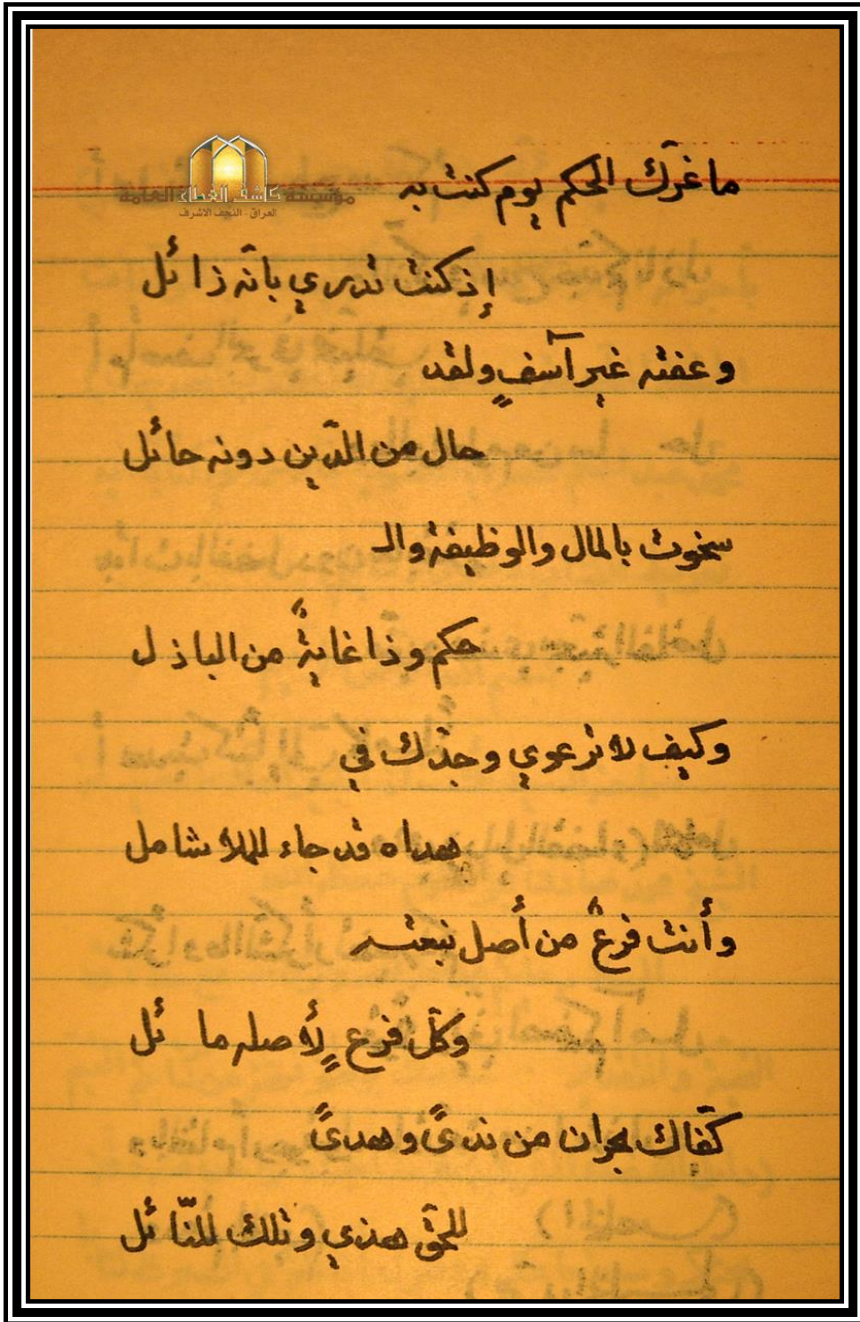 مؤسسة كاشف الغطاء العامة
العراق - النجف الاشرف
ما غرّك الحكم يوم كنت به
إذ كنت تدري بانّه زائل
وعفته غير آسفٍ ولقد
حال من الدّين دونه حائل
سخوت بالمال والوظيفة والـ
حكم وذا غايةً من الباذل
وكيف لا ترعوي وجدّك في
هداه قد جاء للملا شامل
وأنت فرعٌ من أصل نبعته
وكلّ فرعٍ لأصله مائل
كفّاك بحران من ندىً وهدىً
للحقّ هذي وتلك للنّائل